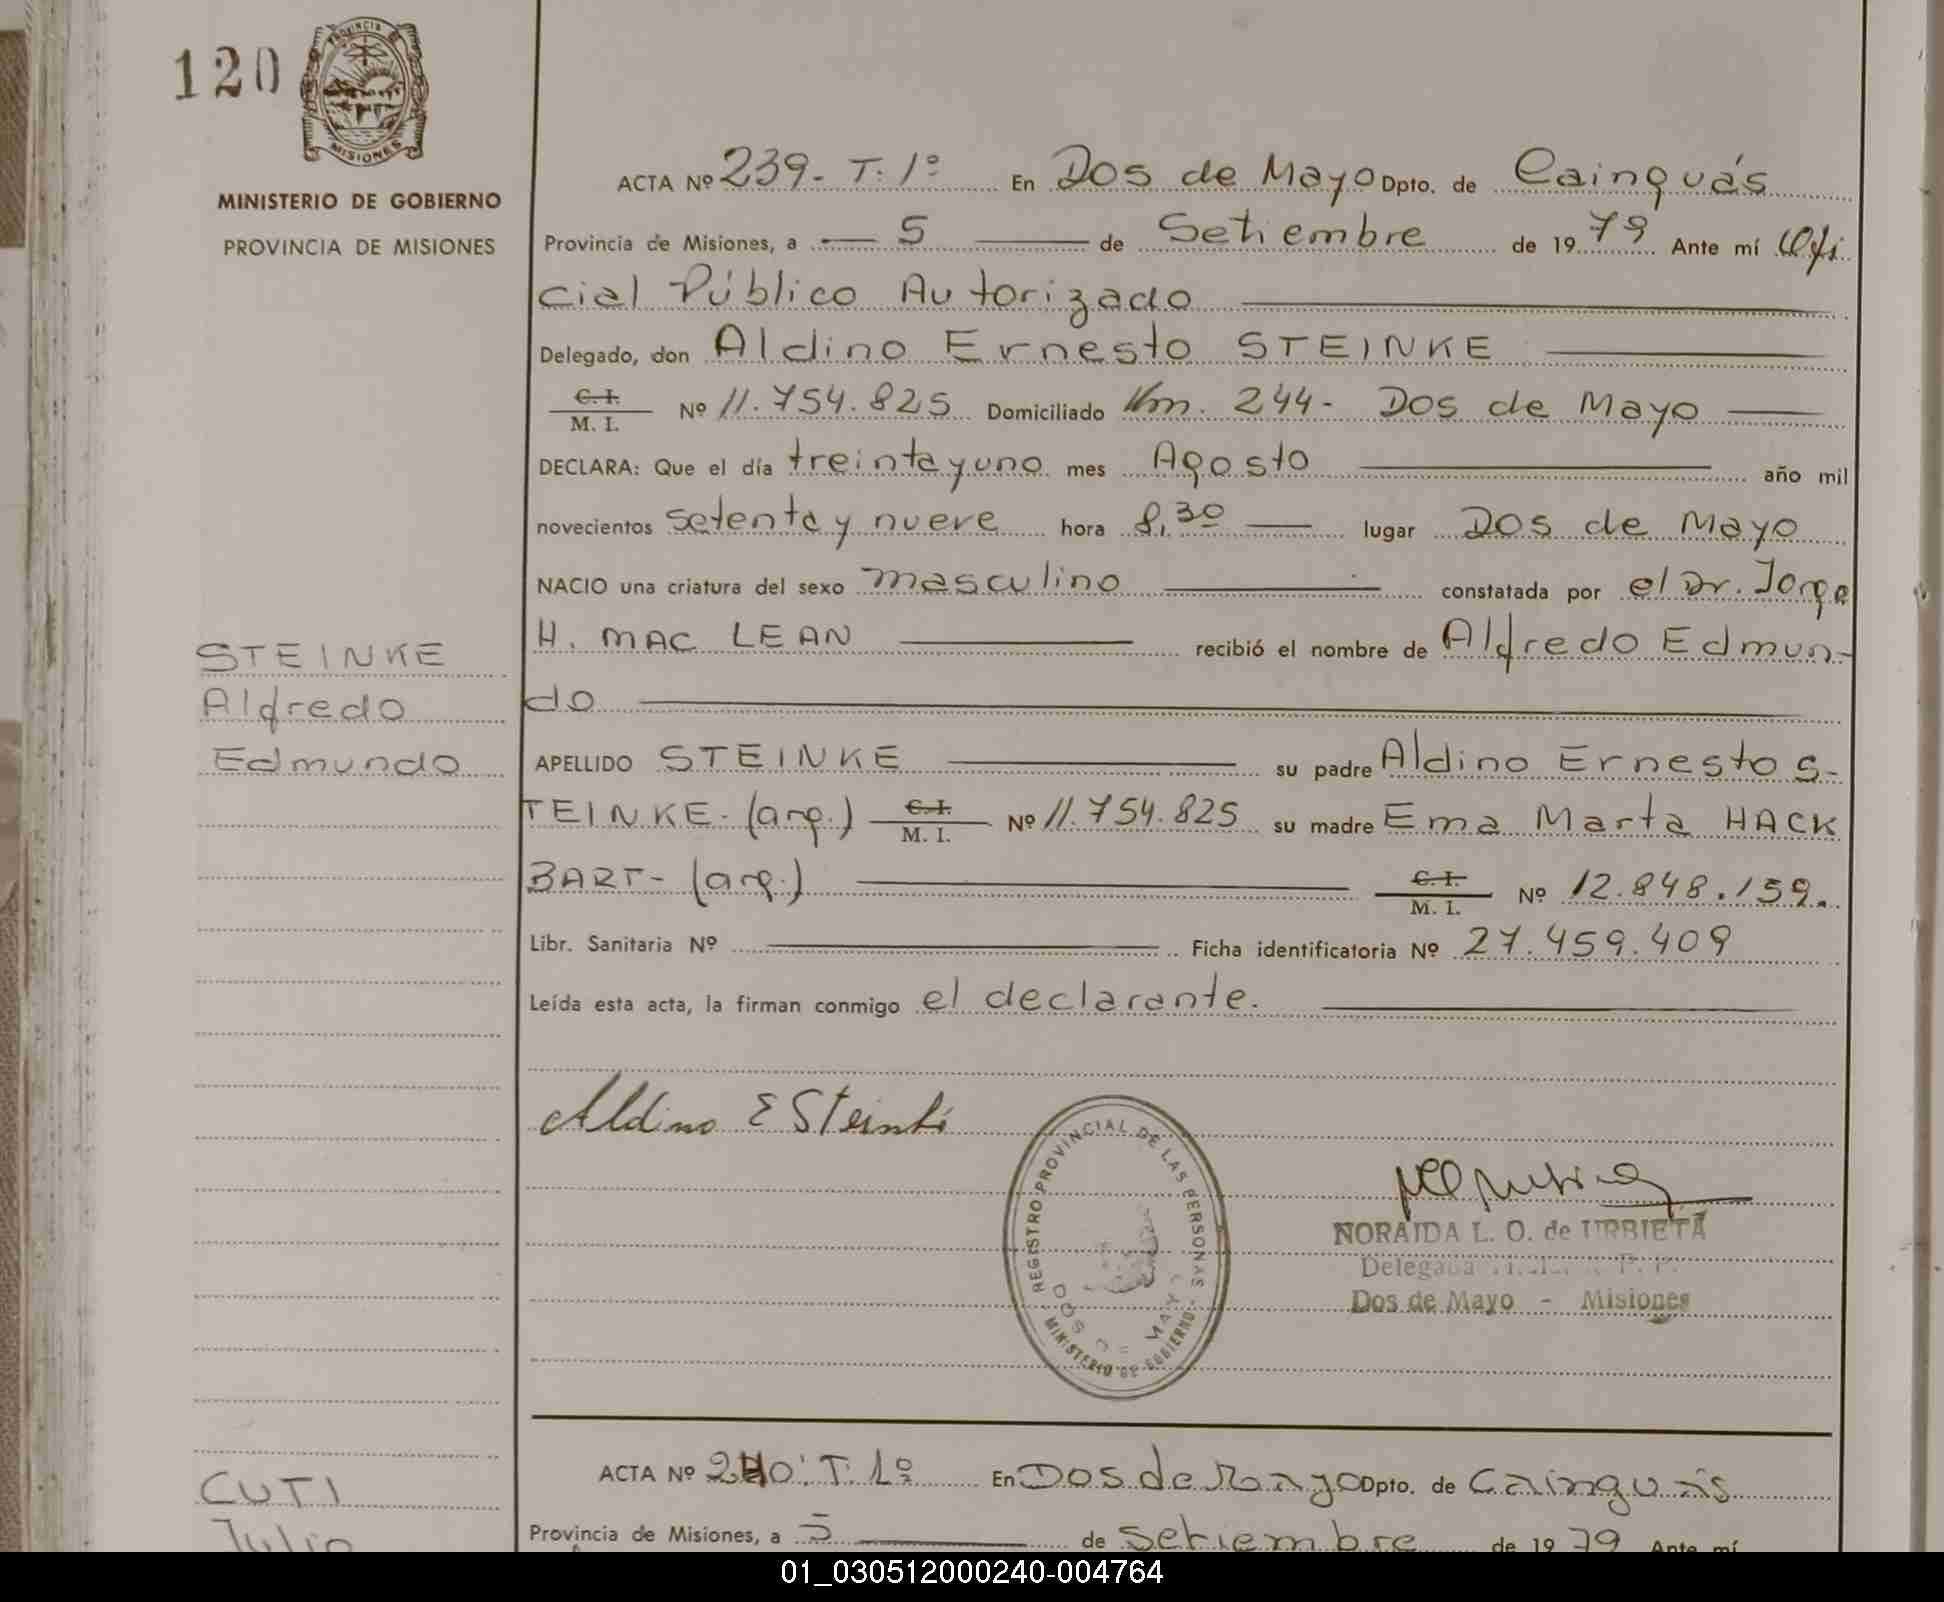 120
PROVINCIA DE
MISIONES
MINISTERIO DE GOBIERNO
PROVINCIA DE MISIONES
STEINKE
Alfredo
Edmundo
ACTA Nº 239- T. 1º En Dos de Mayo Dpto. de Cainguás
Provincia de Misiones, a 5 de Setiembre de 1979 Ante mí Ofi
cial Público Autorizado
Delegado, don Aldino Ernesto STEINKE
C. I.
M. I. Nº 11.754.825 Domiciliado Km. 244- Dos de Mayo
DECLARA: Que el día treinta y uno mes Agosto año mil
novecientos setenta y nueve hora 8,30 lugar Dos de Mayo
NACIO una criatura del sexo masculino constatada por el Dr. Jorge
H. MAC LEAN recibió el nombre de Alfredo Edmun-
do
APELLIDO STEINKE su padre Aldino Ernesto S-
TEINKE- (arg.) C. I. M. I. Nº 11.754.825 su madre Ema Marta HACK
BART- (arg.) C. I. M. I. Nº 12.848.159.
Libr. Sanitaria Nº Ficha identificatoria Nº 27.459.409
Leída esta acta, la firman conmigo el declarante.
Aldino E Steinke
REGISTRO PROVINCIAL DE LAS PERSONAS
DOS DE MAYO
MINISTERIO DE GOBIERNO
NORAIDA L. O. de URBIETA
Delegada
Dos de Mayo - Misiones
CUTI
Julio
ACTA Nº 240: T. 1º En Dos de Mayo Dpto. de Cainguás
Provincia de Misiones, a 5 de Setiembre de 1979 Ante mí
01_030512000240-004764